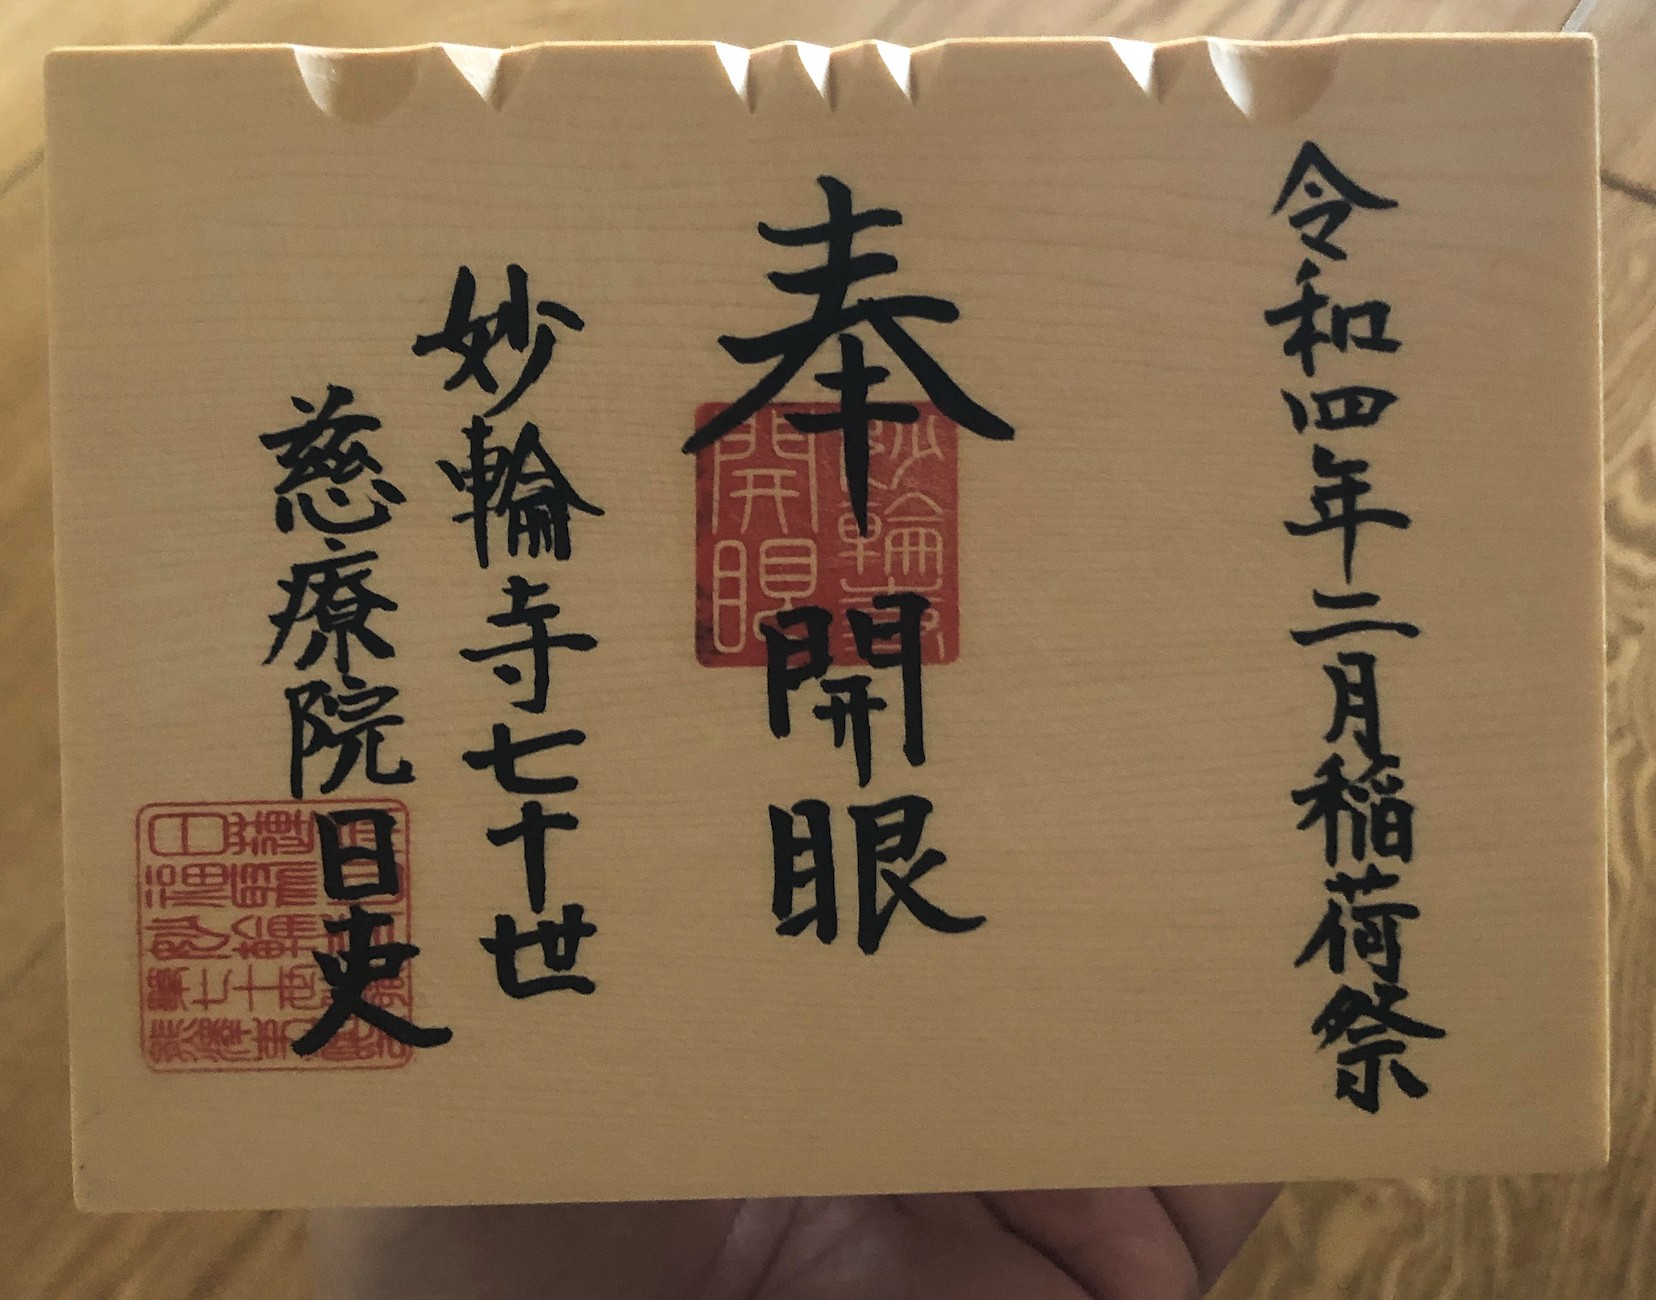 令和四年二月稲荷祭
奉開眼
妙輪寺
開眼
妙輪寺七十世
慈療院日吏